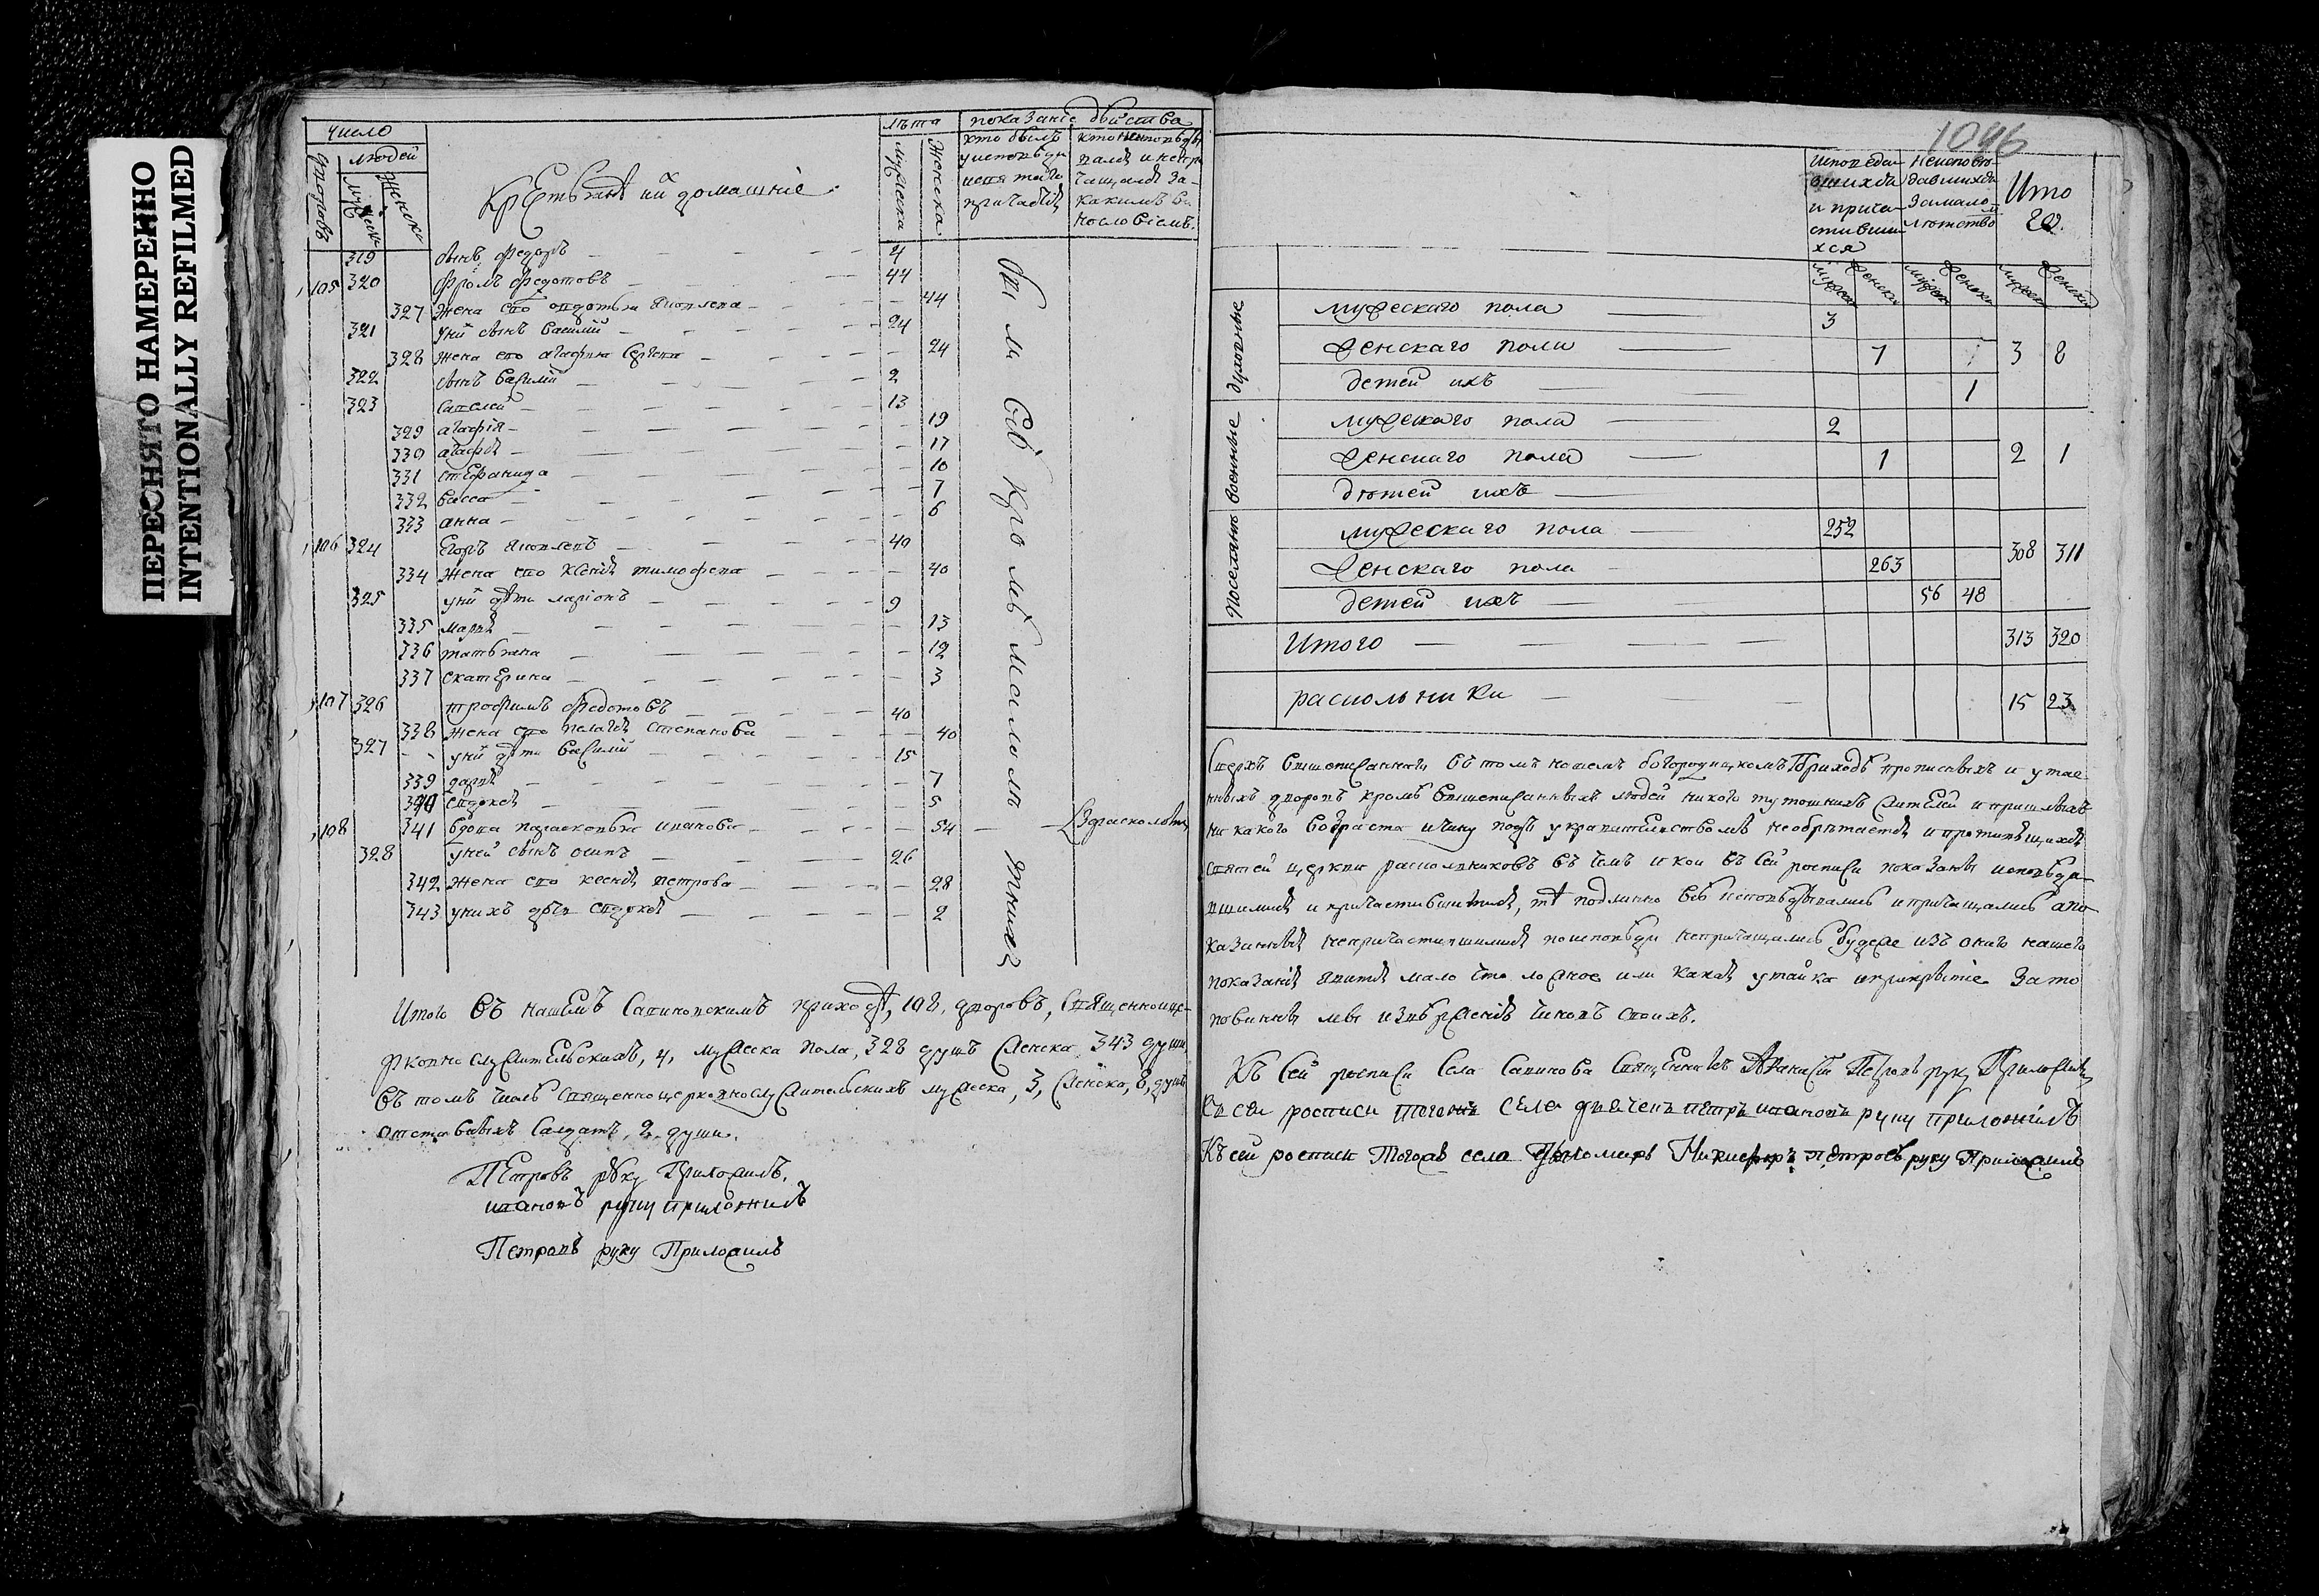 ПЕРЕСНЯТО НАМЕРЕННО
INTENTIONALLY REFILMED
число
людей
дворовъ
мужеска
женска
Крестьянѣ и их домашніе
лѣта
мужеска
женска
показаніе действа
кто былъ у исповеди и святаго причастія
319 сынъ федоръ 4
105 320 фролъ федотовъ 44
327 жена ево авдотья яковлева 44
321 у них сынъ василий 24
328 жена ево агафия 24
322 сынъ василий 2
323 савелей 13
329 агафія 19
330 агафія 17
331 стефанида 10
332 васса 7
333 анна 6
106 324 Егоръ яковлевъ 40
334 жена ево ксенія тимофеева 40
325 у них дети ларіонъ 9
335 марья 13
336 татьяна 12
337 екатерина 3
107 326 трофимъ федотовъ 40
338 жена ево пелагія степанова 40
327 у них дети василий 15
339 дарья 7
340 евдокея 5
108 341 вдова парасковья иванова 54
328 у ней сынъ осипъ 26
342 жена ево ксенія петрова 28
343 у нихъ дочь евдокея 2
были все кроме малолетних
Итого въ нашемъ приходе, 108, дворовъ, священноце-
рковнослужительскихъ, 4, мужеска пола, 328 душъ женска 343 души
въ томъ числе священноцерковнослужительскихъ мужеска, 3, женска, 8, душъ
отставныхъ салдатъ, 2, души.
Петровъ руку Приложилъ.
ивановъ руку приложилъ
Петровъ руку Приложилъ
1046
Исповеда-
вшихся
и прича-
стивши-
хся
Неисповѣ-
давшихся
за мало-
лѣтство
Ито
го
мужеск женски мужеск женски мужеск женски
духовные
мужескаго пола 3
женскаго пола 7 3 8
детей ихъ 1
военные
мужескаго пола 2
женскаго пола 1 2 1
дѣтей ихъ
поселянѣ
мужескаго пола 252
женскаго пола 263 308 311
детей ихъ 56 48
Итого 313 320
раскольники 15 23
Сверхъ вышеписанныхъ въ томъ нашемъ богородицкомъ Приходѣ прописныхъ и утае-
нныхъ дворовъ кромѣ вышеписанныхъ людей никого тутошнихъ жителей и пришлыхъ
никакого возраста и чину подъ укрывательствомъ необрѣтается и противящихся
святей церкви раскольниковъ въ чемъ и кои въ сей росписи показаны исповеда-
вшимися и причастившимися, тѣ подлинно все исповедывались и причащались а по-
казанныя непричастившимися по исповеди непричащались буде же изъ онаго нашего
показания явится мало что ложное или какая утайка и прикрытіе за то
повинны мы извержения чиновъ своихъ.
Къ сей росписи села священникъ Афанасій Петровъ руку Приложилъ
къ сеи росписи тогожъ села дьячекъ петръ ивановъ руку приложилъ
Къ сей росписи тогожъ села пономарь Никифоръ петровъ руку Приложилъ